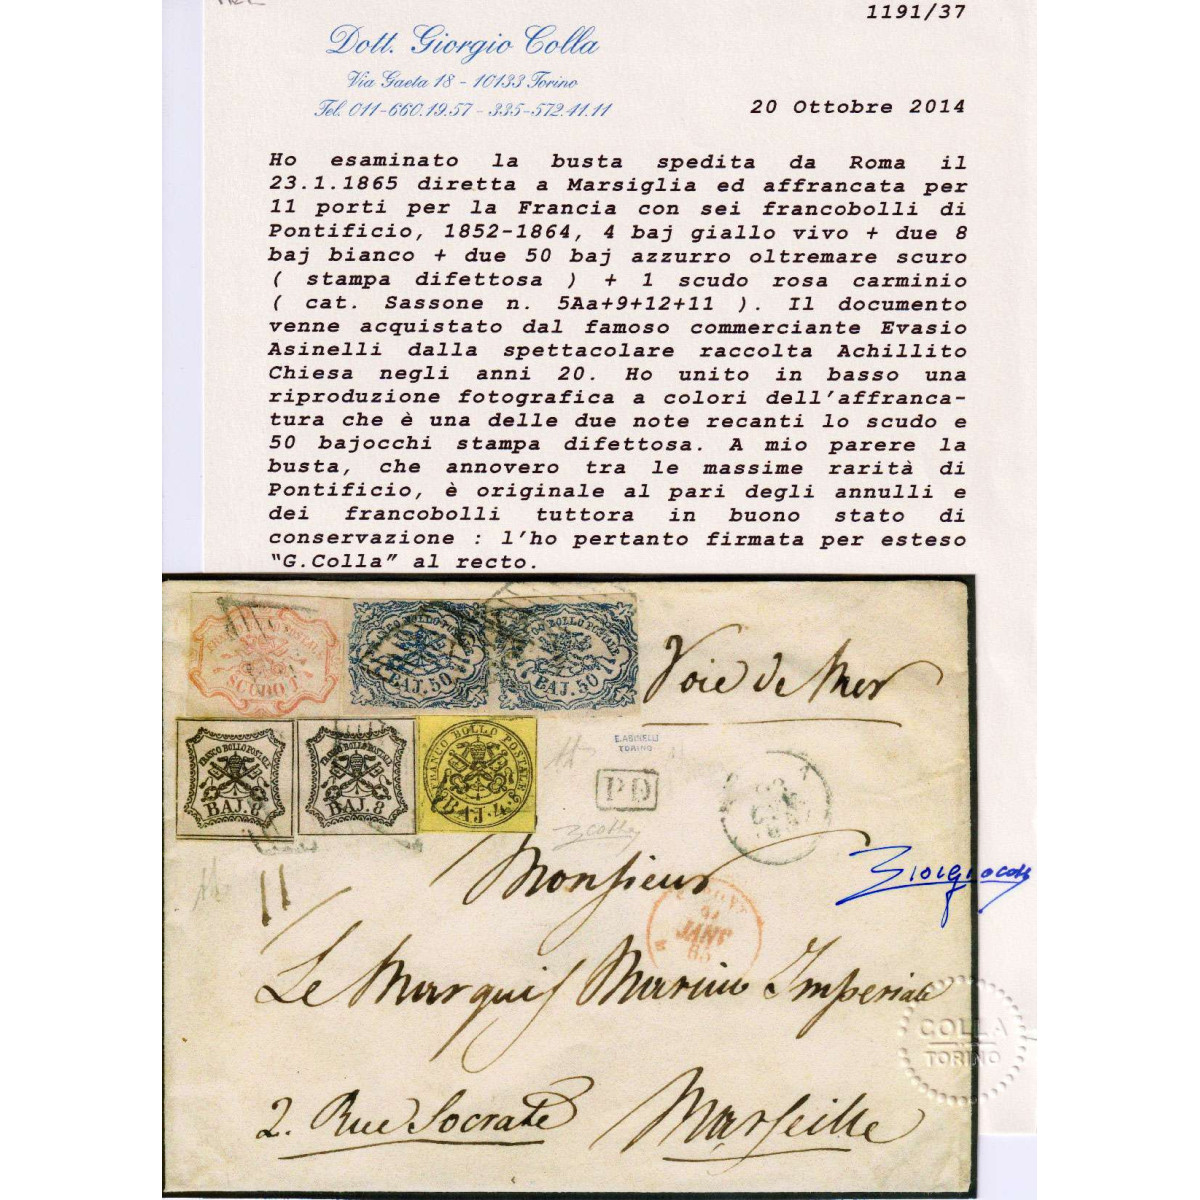 1191/37
Dott. Giorgio Colla
Via Gaeta 18 - 10133 Torino
Tel. 011-660.19.57 - 335-572.41.11
20 Ottobre 2014
Ho esaminato la busta spedita da Roma il
23.1.1865 diretta a Marsiglia ed affrancata per
11 porti per la Francia con sei francobolli di
Pontificio, 1852-1864, 4 baj giallo vivo + due 8
baj bianco + due 50 baj azzurro oltremare scuro
( stampa difettosa ) + 1 scudo rosa carminio
( cat. Sassone n. 5Aa+9+12+11 ). Il documento
venne acquistato dal famoso commerciante Evasio
Asinelli dalla spettacolare raccolta Achillito
Chiesa negli anni 20. Ho unito in basso una
riproduzione fotografica a colori dell'affranca-
tura che è una delle due note recanti lo scudo e
50 bajocchi stampa difettosa. A mio parere la
busta, che annovero tra le massime rarità di
Pontificio, è originale al pari degli annulli e
dei francobolli tuttora in buono stato di
conservazione : l'ho pertanto firmata per esteso
"G.Colla" al recto.
SCUDO 1
FRANCO BOLLO POSTALE
BAJ. 50
FRANCO BOLLO POSTALE
BAJ. 50
Voie de Mer
FRANCO BOLLO POSTALE
BAJ. 8
FRANCO BOLLO POSTALE
BAJ. 8
FRANCO BOLLO POSTALE
BAJ. 4
E.ASINELLI
TORINO
PD
GColla
11
Monsieur
Giorgio Colla
JANV
65
Le Marquis Marius Imperiale
COLLA
TORINO
2. Rue Socrate
Marseille